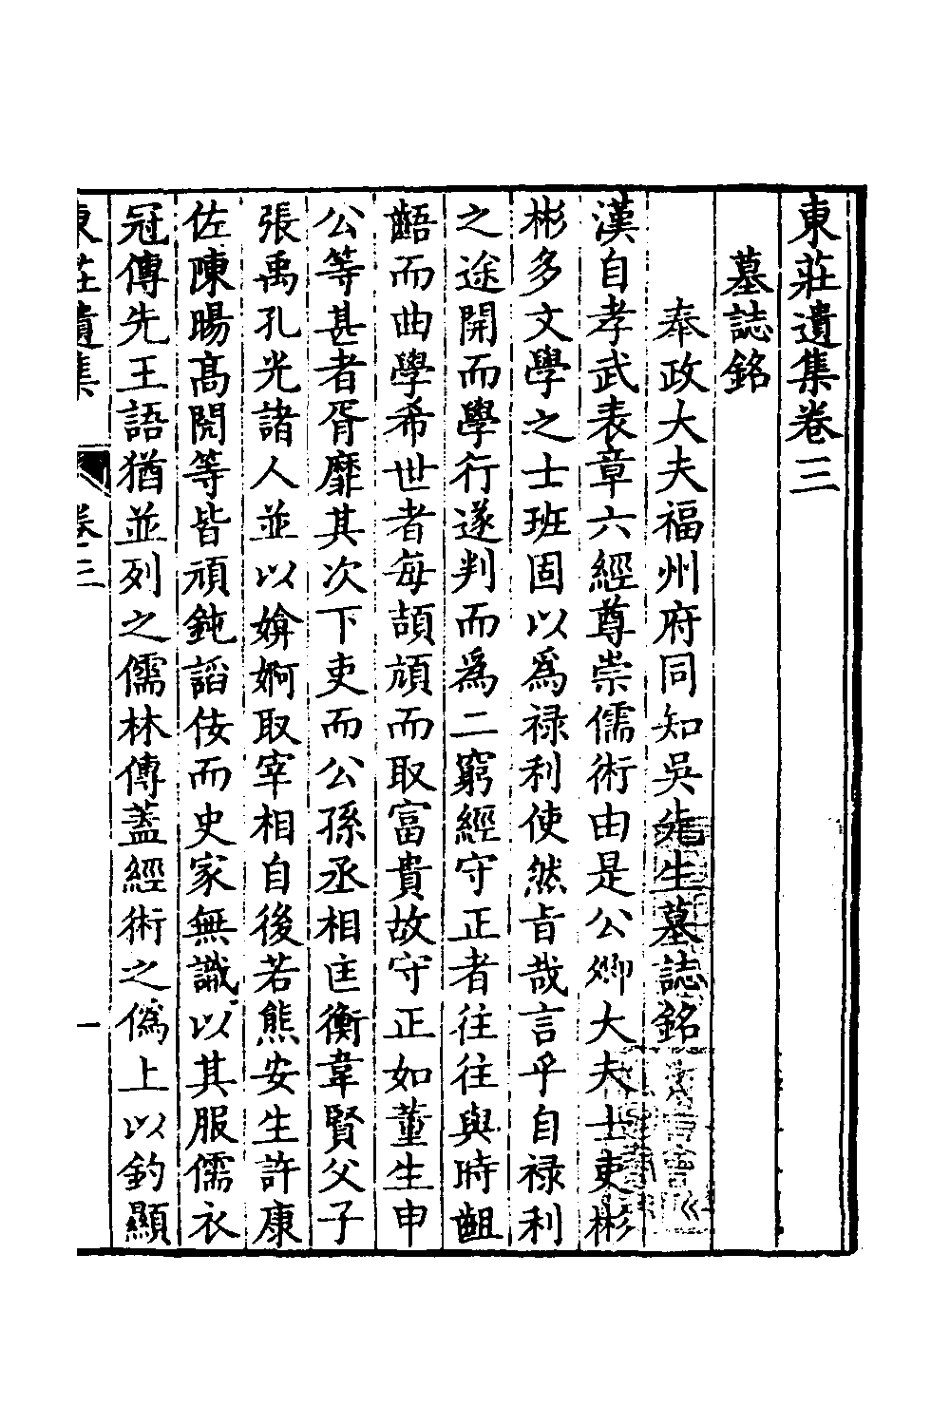 東莊遺集卷三
墓誌銘
奉政大夫福州府同知吳先生墓誌銘
漢自孝武表章六經尊崇儒術由是公卿大夫士吏彬
彬多文學之士班固以爲祿利使然旨哉言乎自祿利
之途開而學行遂判而爲二窮經守正者往往與時齟
齬而曲學希世者每頡頑而取富貴故守正如董生申
公等甚者胥靡其次下吏而公孫丞相匡衡韋賢父子
張禹孔光諸人並以媕婀取宰相自後若熊安生許康
佐陳暘高閌等皆頑鈍謟佞而史家無識以其服儒衣
冠傳先王語猶並列之儒林傳蓋經術之僞上以釣顯
東莊遺集 卷三 一